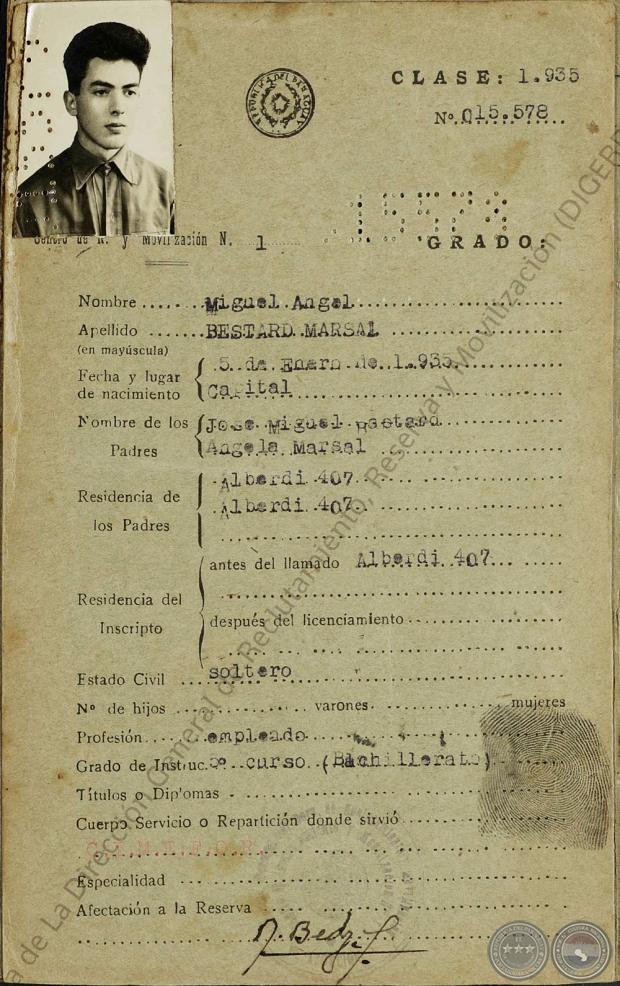 REPUBLICA DEL PARAGUAY
CLASE: 1.935
Nº. 015.578
Centro de R. y Movilización N. 1
GRADO:
Nombre ...... Miguel Angel
Apellido ...... BESTARD MARSAL
(en mayúscula)
Fecha y lugar de nacimiento { 5 de Enero de 1.935
Capital
Nombre de los Padres { Jose Miguel Bestard
Angela Marsal
Residencia de los Padres { Alberdi 407
Alberdi 407
Residencia del Inscripto { antes del llamado Alberdi 407
después del licenciamiento
Estado Civil ... soltero
Nº de hijos ... varones ... mujeres
Profesión ... empleado
Grado de Instruc. curso (Bachillerato)
Títulos o Dip'omas
Cuerpo Servicio o Repartición donde sirvió
Especialidad
Afectación a la Reserva
de La Dirección General de Reclutamiento, Reserva y Movilización (DIGERE